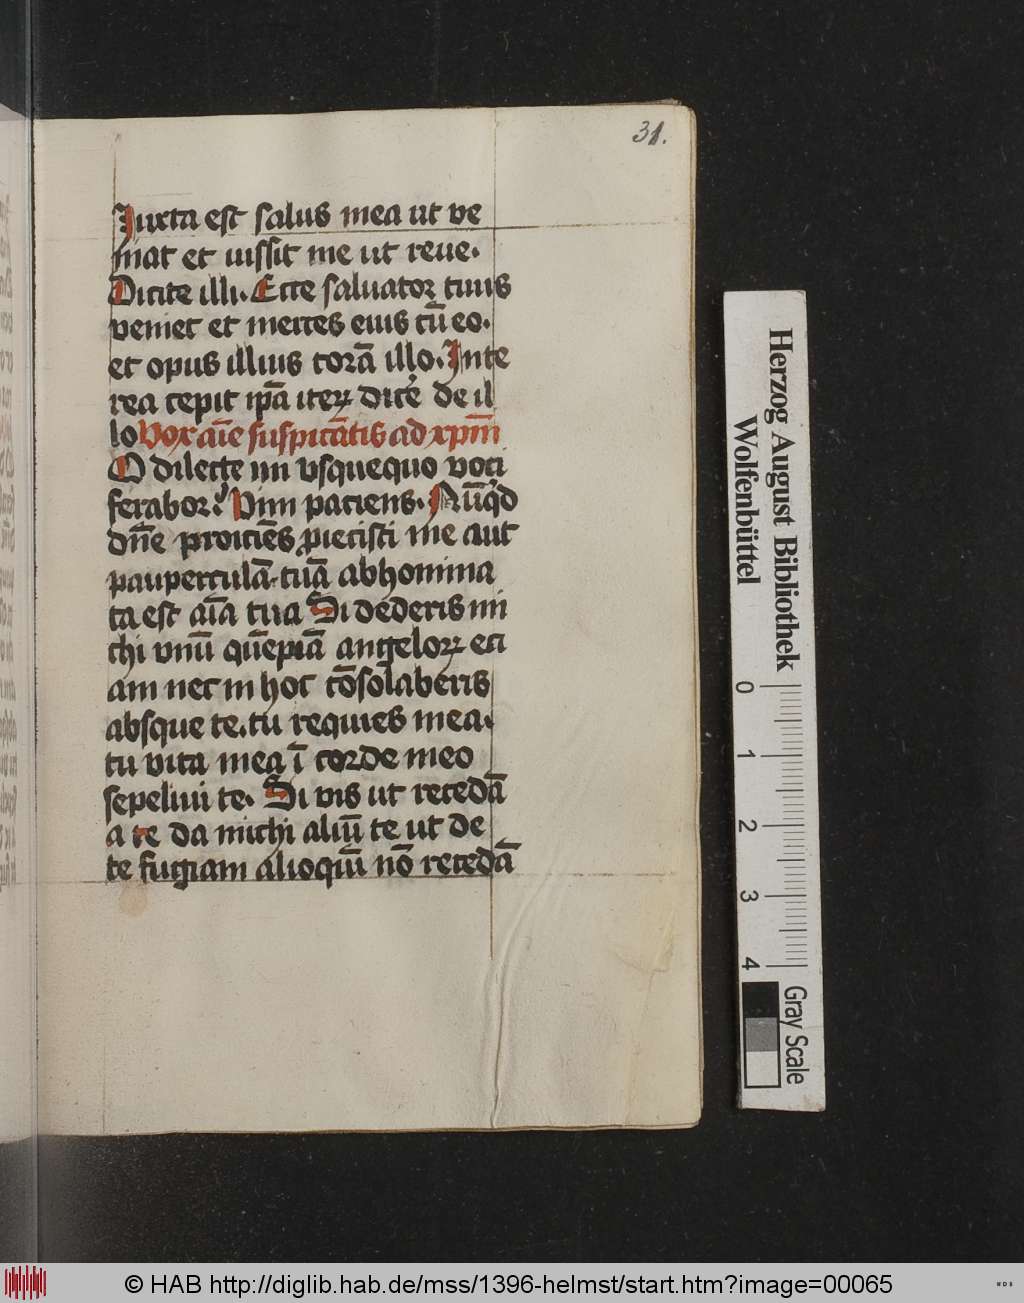 31.
Juxta est salus mea ut ve
niat et iussit me ut reue.
Dicite illi. Ecce saluator tuus
veniet et merces eius cū eo.
et opus illius corā illo. Inte
rea cepit ip̄a iteꝝ dicē de il
lo Vox aīe suspicātis ad xpm̄
O dilecte mi vsquequo voci
ferabor? Vim paciens. Nūqͥd
dn̄e proiciēs ꝓiecisti me aut
paupercula᷑. tuā abhomina
ta est aīa tua Si dederis mi
chi vnū quēpiā angeloꝝ eci
am nec in hoc cōsolaberis
absque te. tu requies mea.
tu vita mea ī corde meo
sepeliui te. Si vis ut recedā
a te da michi aliū te ut de
te fugiam alioqiū nō recedā
Herzog August Bibliothek
Wolfenbüttel
0 1 2 3 4
Gray Scale
© HAB http://diglib.hab.de/mss/1396-helmst/start.htm?image=00065
WDB